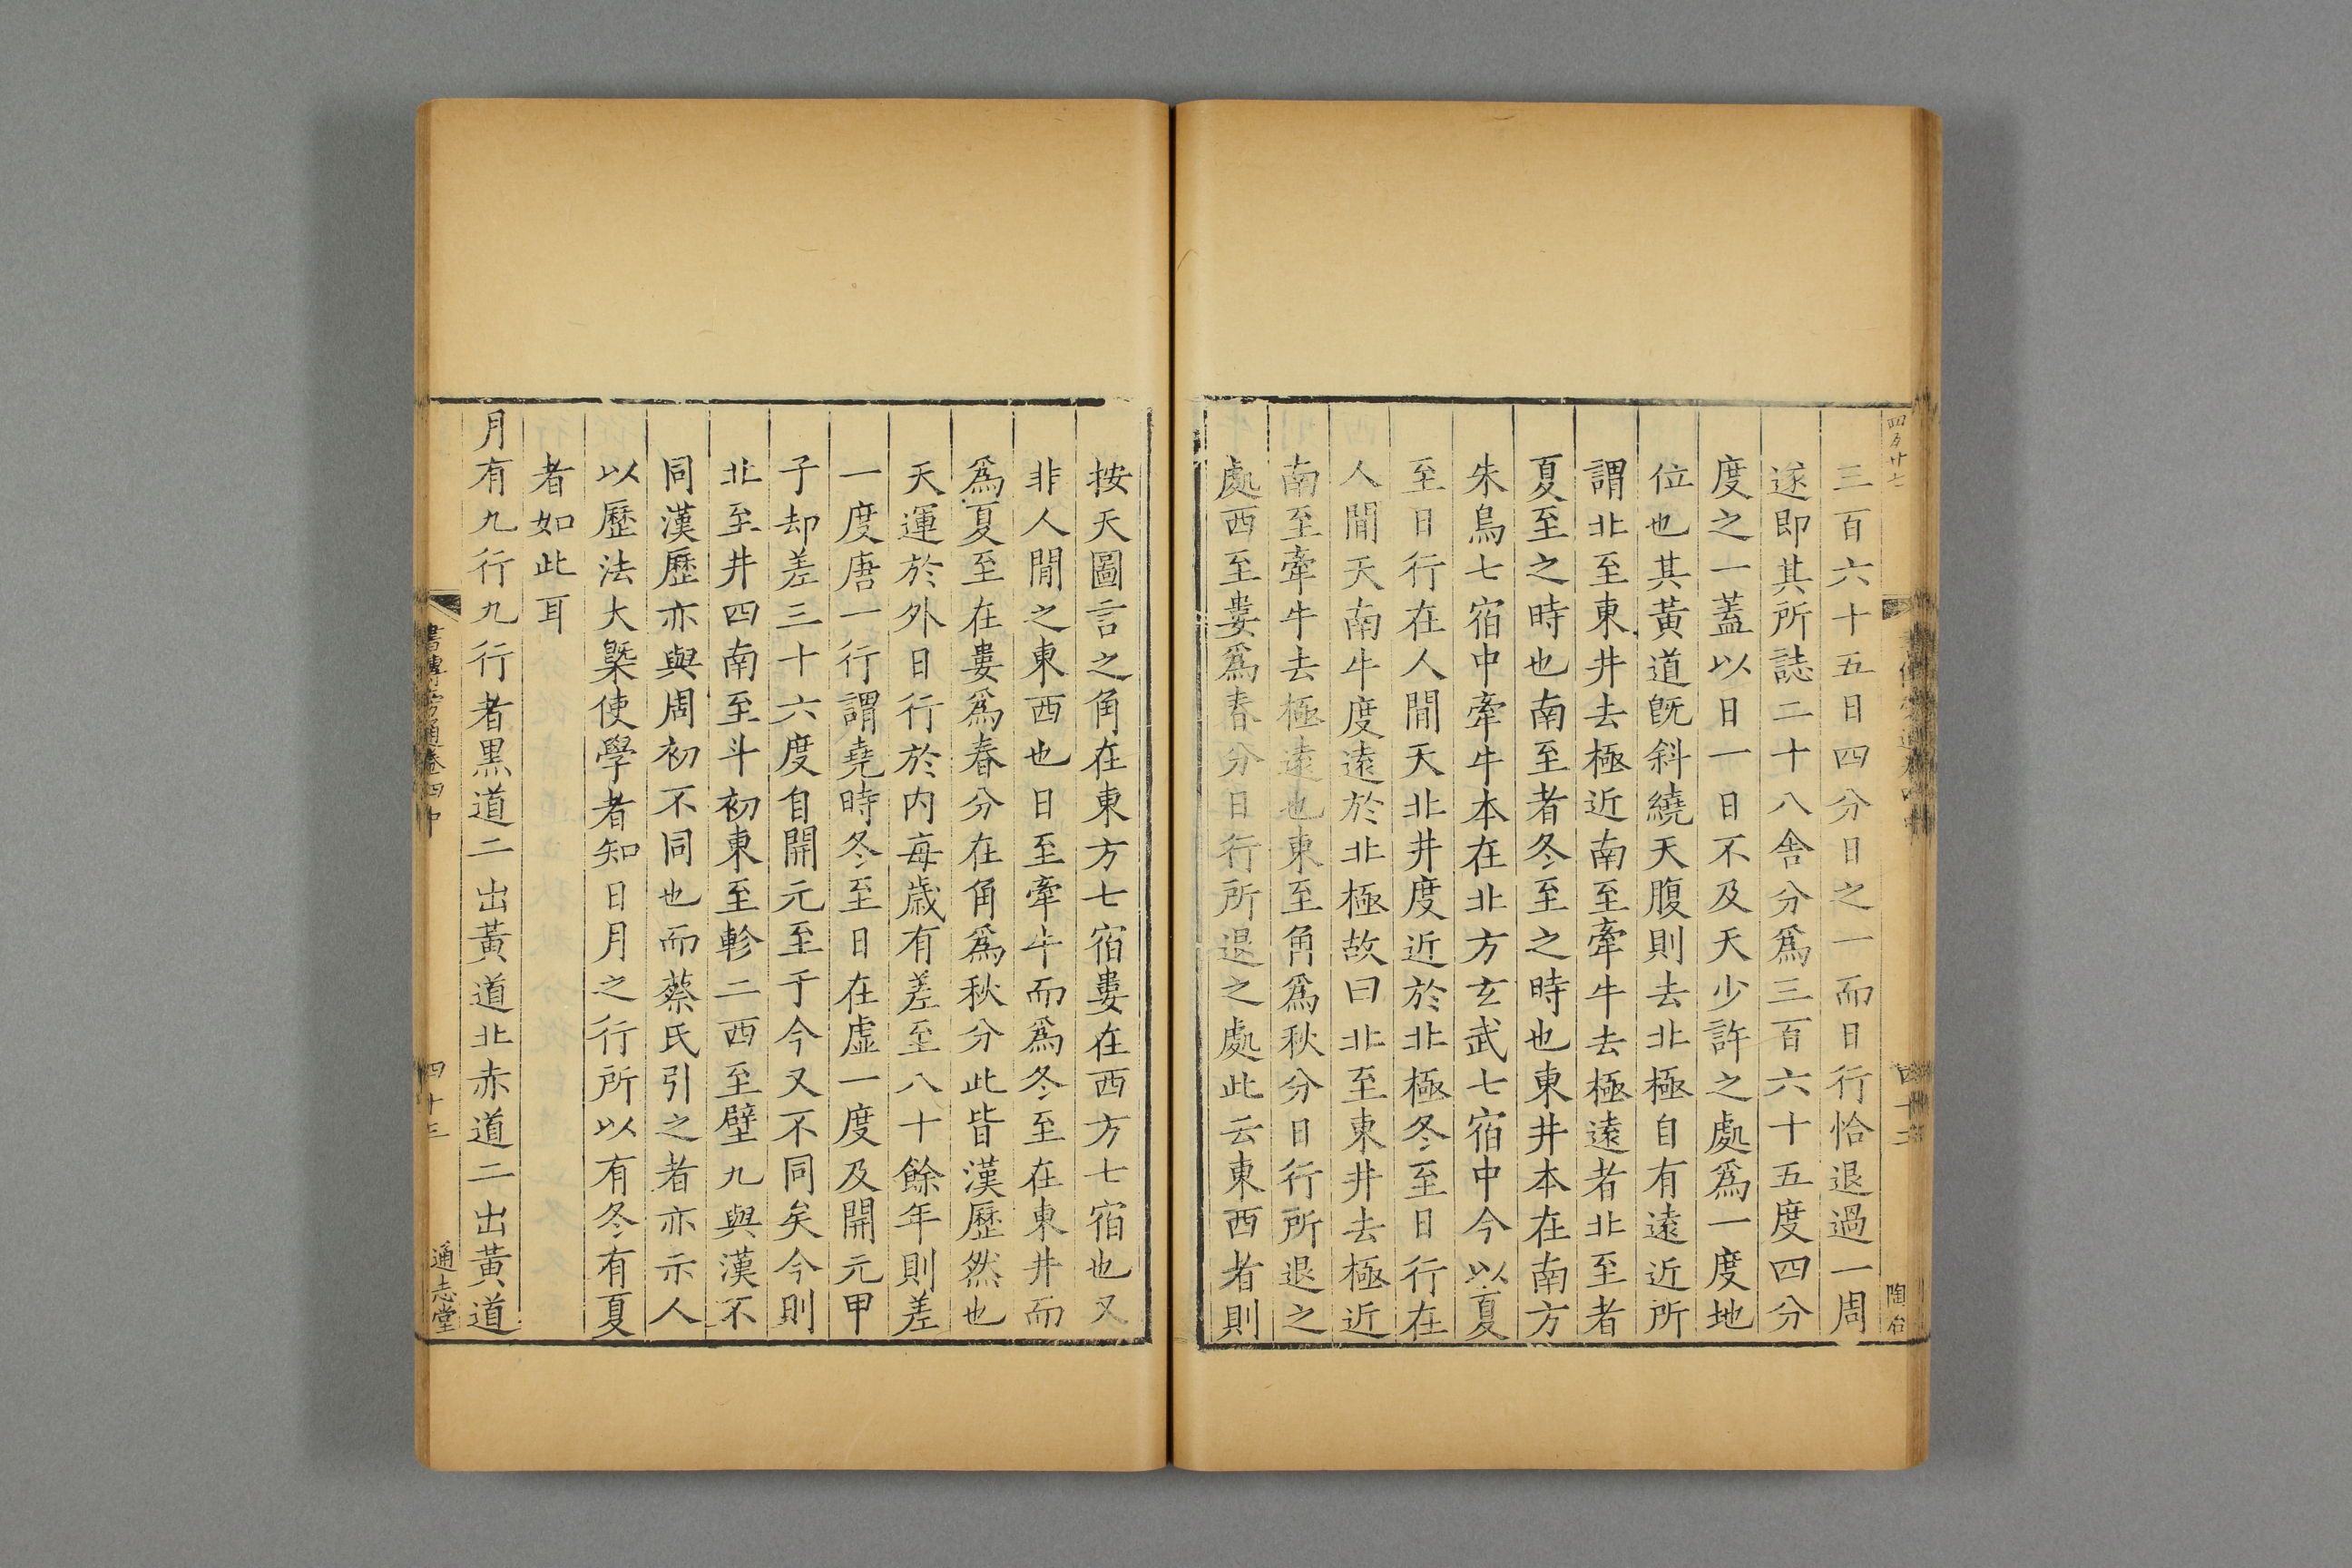 三百六十五日四分日之一而日行恰退過一周
遂即其所誌二十八舍分爲三百六十五度四分
度之一蓋以日一日不及天少許之處爲一度地
位也其黃道旣斜繞天腹則去北極自有遠近所
謂北至東井去極近南至牽牛去極遠者北至者
夏至之時也南至者冬至之時也東井本在南方
朱鳥七宿中牽牛本在北方玄武七宿中今以夏
至日行在人間天北井度近於北極冬至日行在
人間天南牛度遠於北極故曰北至東井去極近
南至牽牛去極遠也東至角爲秋分日行所退之
處西至婁爲春分日行所退之處此云東西者則
陶台
按天圖言之角在東方七宿婁在西方七宿也又
非人間之東西也日至牽牛而爲冬至在東井而
爲夏至在婁爲春分在角爲秋分此皆漢歷然也
天運於外日行於內每歲有差至八十餘年則差
一度唐一行謂堯時冬至日在虛一度及開元甲
子却差三十六度自開元至于今又不同矣今則
北至井四南至斗初東至軫二西至壁九與漢不
同漢歷亦與周初不同也而蔡氏引之者亦示人
以歷法大槩使學者知日月之行所以有冬有夏
者如此耳
月有九行九行者黑道二出黃道北赤道二出黃道
書傳旁通卷四中
四十三
通志堂